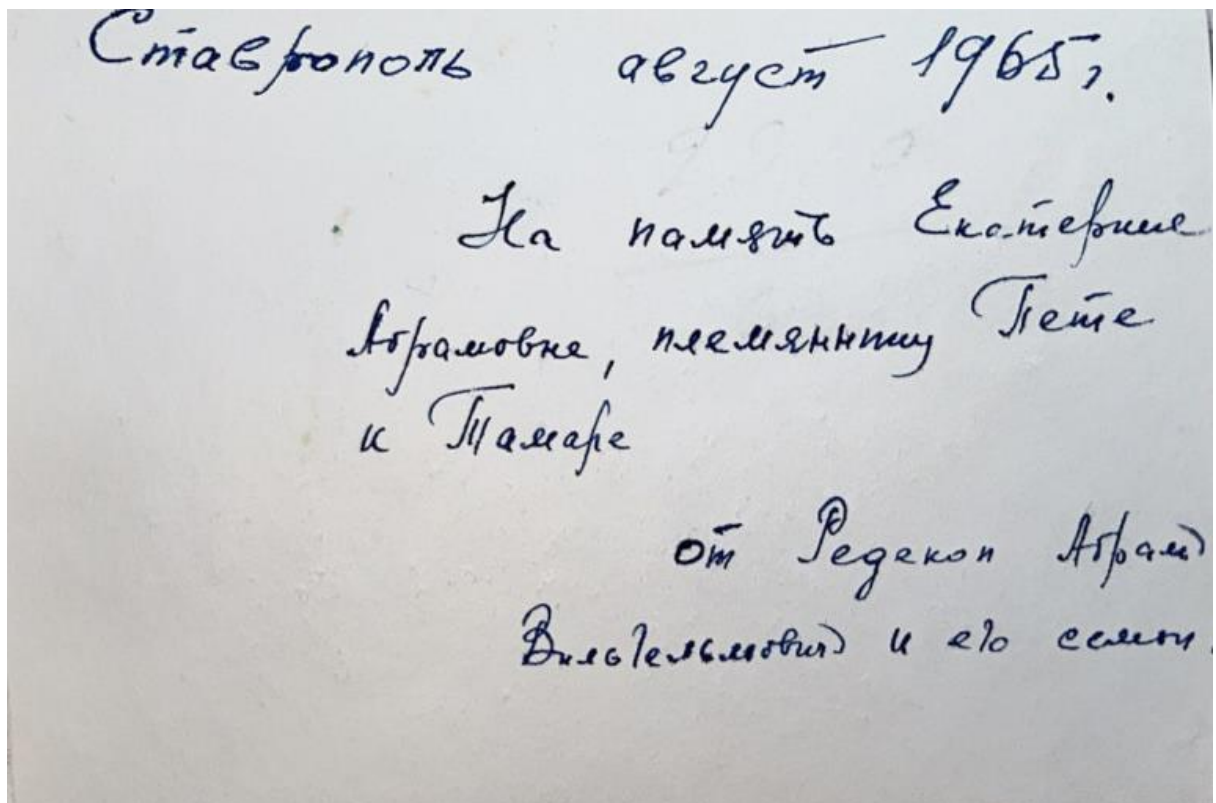 Ставрополь август 1965 г.
На память Екатерине
Абрамовне, племяннику Пете
и Тамаре
от Редекоп Абрам
Вильгельмович и его семьи.